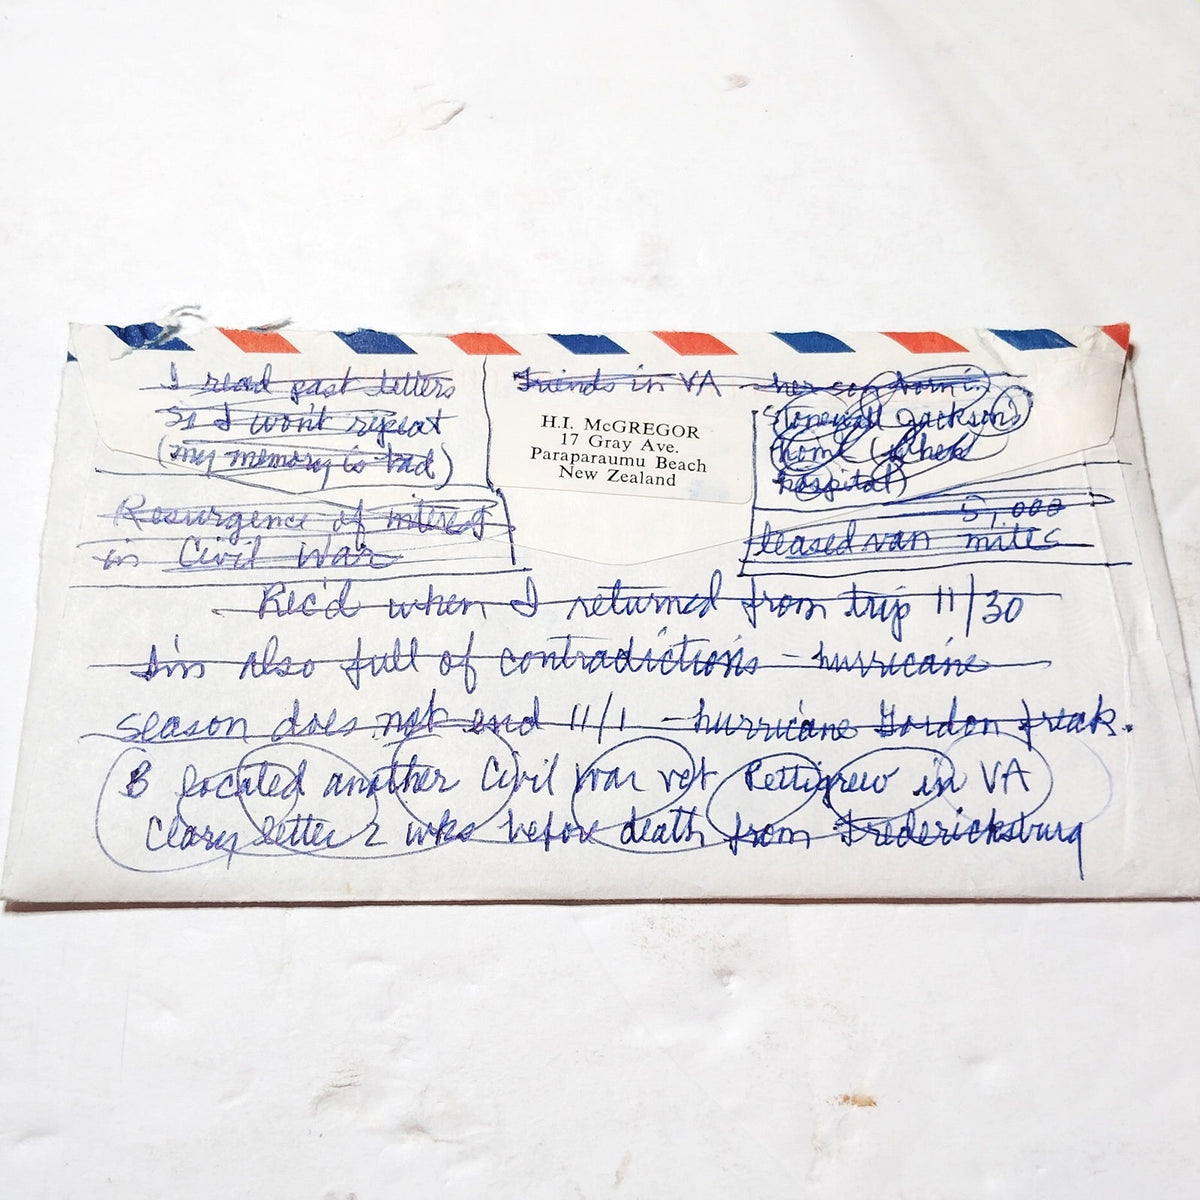 I read past letters
so I won't repeat
(my memory is bad)
Resurgence of interest
in Civil War
Friends in VA - her son born in
Stonewall Jackson
home (then
hospital)
H.I. McGREGOR
17 Gray Ave.
Paraparaumu Beach
New Zealand
5,000
leased van miles
Rec'd when I returned from trip 11/30
also full of contradictions - hurricane
season does not end 11/1 - hurricane Gordon freak.
B located another Civil War vet Pettigrew in VA
Clary letter 2 wks before death from Fredericksburg